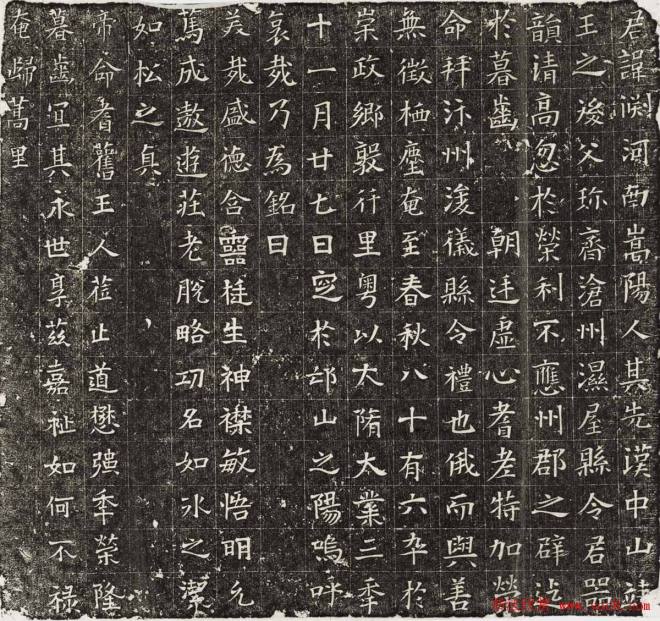 君諱渊河南嵩陽人其先漢中山靖
王之後父珎齊滄州濕屋縣令君器
韻清高忽於榮利不應州郡之辟迄
於暮齒 朝廷虛心耆老特加榮
命拜汴州浚儀縣令禮也俄而與善
無徵栖塵奄至春秋八十有六卒於
崇政鄉敦行里粵以大隋大業三年
十一月廿七日窆於邙山之陽嗚呼
哀哉乃為銘曰
美哉盛德含靈挺生神襟敏悟明允
篤成遨遊莊老脫略功名如冰之潔
如松之貞
帝命耆舊王人莅止道懋強年榮隆
暮齒宜其永世享茲嘉祉如何不祿
奄歸蒿里